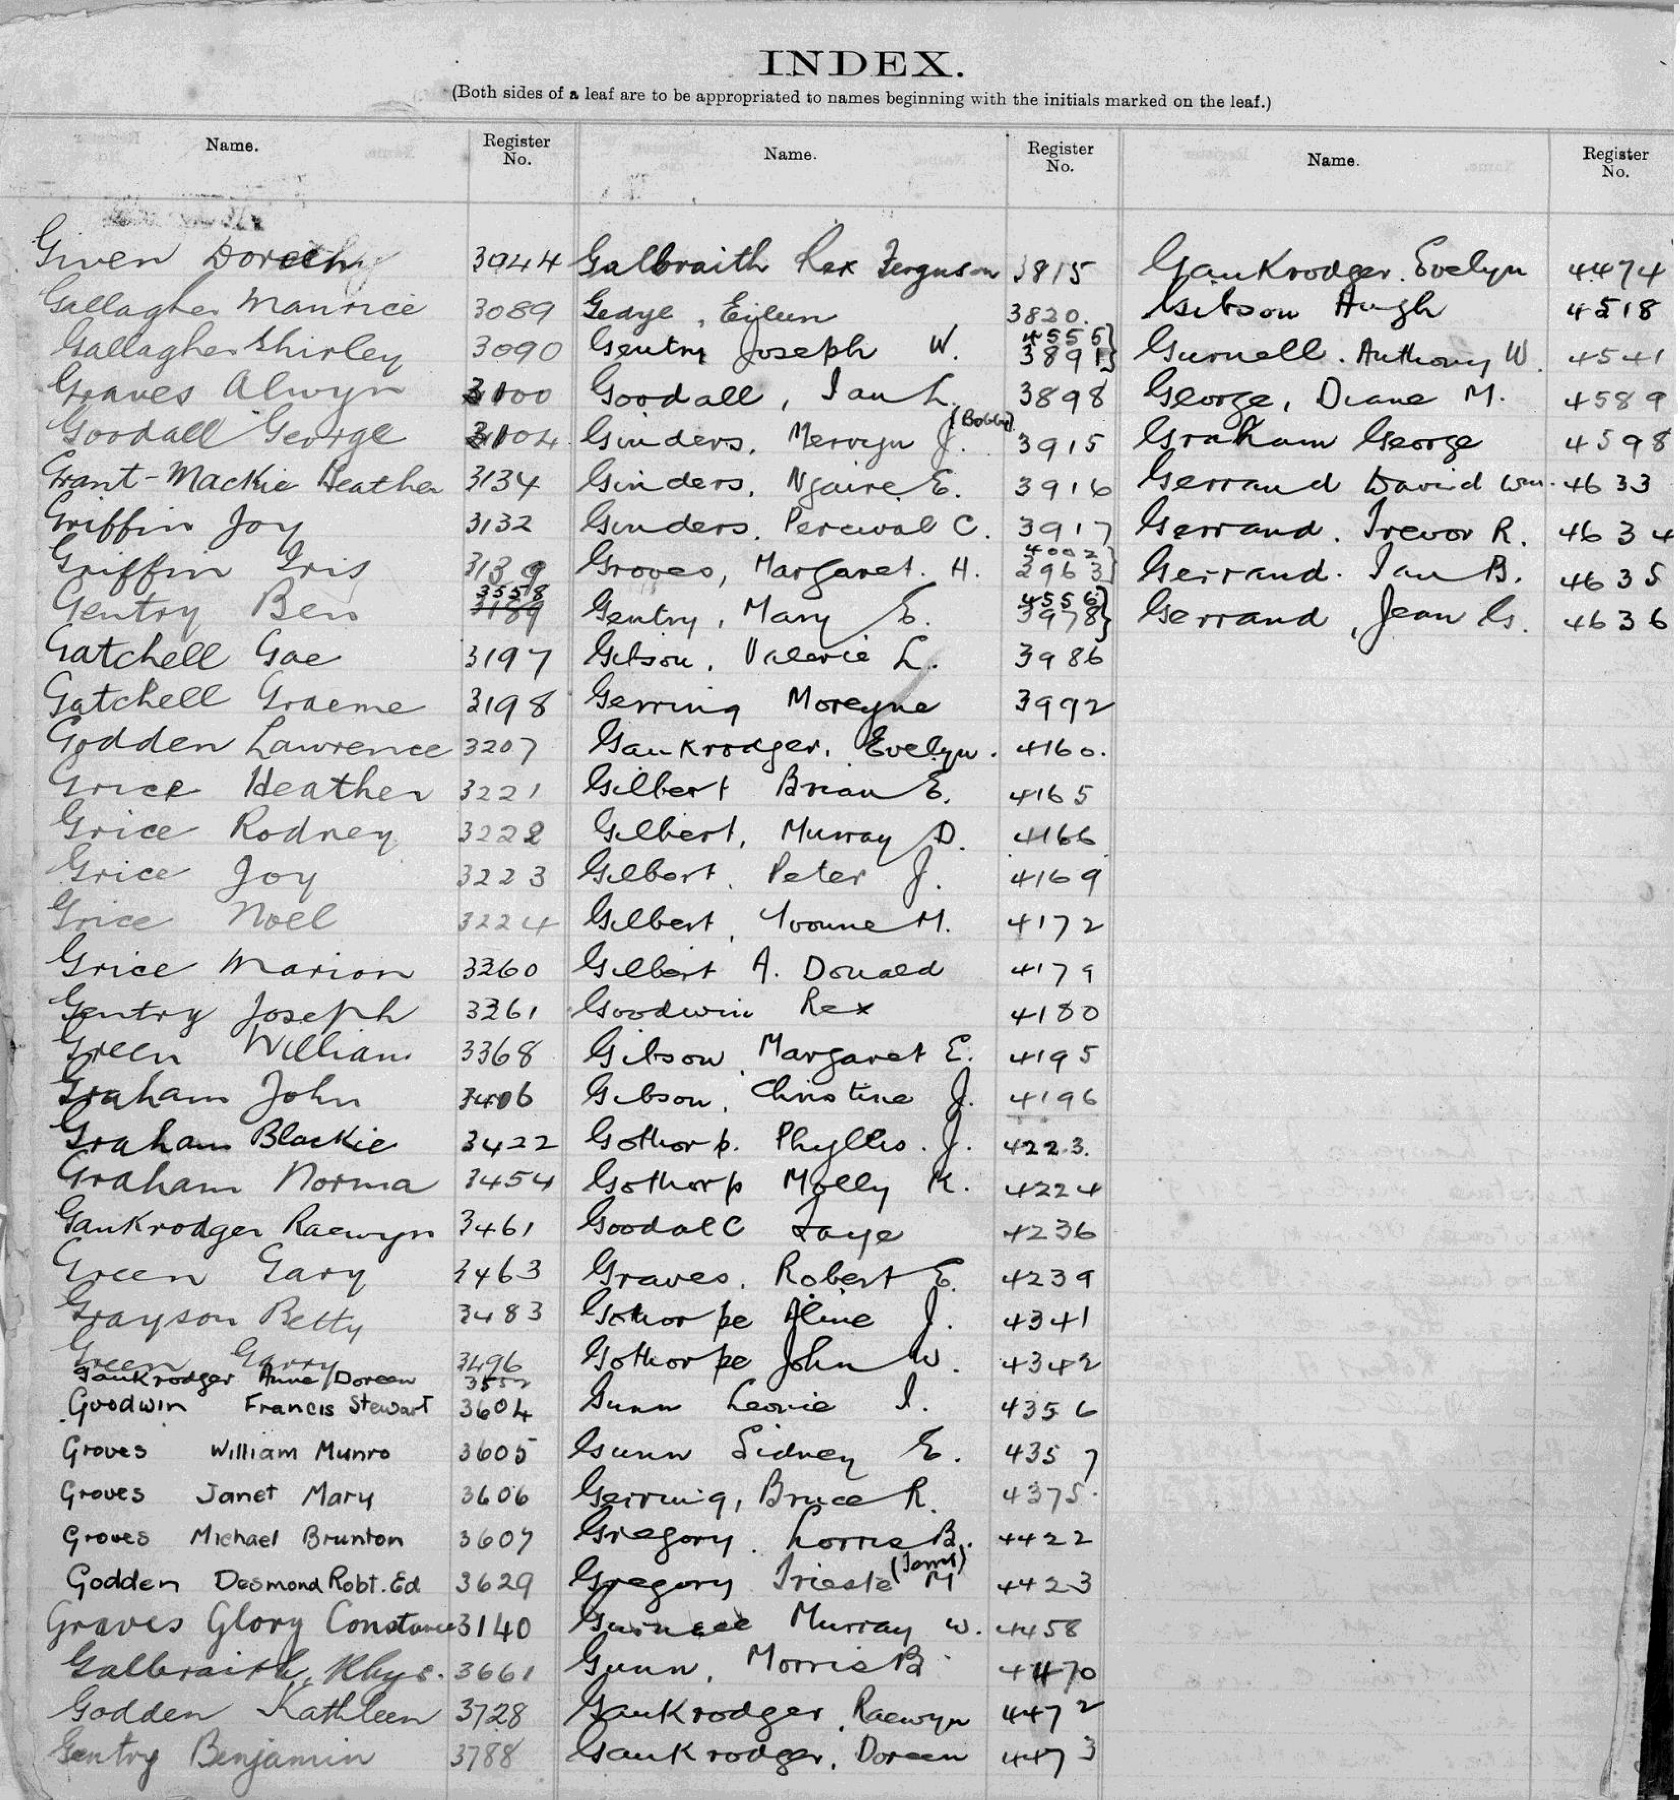 INDEX.
(Both sides of a leaf are to be appropriated to names beginning with the initials marked on the leaf.)
Name. Register No.
Given Dorothy 3044
Gallagher Maurice 3089
Gallagher Shirley 3090
Graves Alwyn 3100
Goodall George 3104
Grant-Mackie Heather 3134
Griffin Joy 3132
Griffin Iris 3139
3558
Gentry Ben 3189
Gatchell Gae 3197
Gatchell Graeme 3198
Godden Lawrence 3207
Grice Heather 3221
Grice Rodney 3222
Grice Joy 3223
Grice Noel 3224
Grice Marion 3260
Gentry Joseph 3261
Green William 3368
Graham John 3406
Graham Blackie 3422
Graham Norma 3454
Gaukrodger Raewyn 3461
Green Gary 3463
Grayson Betty 3483
Green Garry 3496
Gaukrodger Anne/Doreen 3552
Goodwin Francis Stewart 3604
Groves William Munro 3605
Groves Janet Mary 3606
Groves Michael Brunton 3607
Godden Desmond Robt. Ed 3629
Graves Glory Constance 3140
Galbraith, Rhys. 3661
Godden Kathleen 3728
Gentry Benjamin 3788
Name. Register No.
Galbraith Rex Ferguson 3815
Gedye, Eileen 3820.
4555}
Gentry Joseph W. 3891}
Goodall, Ian L. 3898
(Bobby)
Ginders, Mervyn J. 3915
Ginders, Ngaire E. 3916
Ginders, Percival C. 3917
4002}
Groves, Margaret. H. 3963}
4556}
Gentry, Mary E. 3978}
Gibson, Valerie L. 3986
Gerring Moreyne 3992
Gaukrodger, Evelyn. 4160.
Gilbert Brian E. 4165
Gilbert, Murray D. 4166
Gilbert, Peter J. 4169
Gilbert, Yvonne M. 4172
Gilbert A. Donald 4179
Goodwin Rex 4180
Gibson, Margaret E. 4195
Gibson, Christine J. 4196
Gothorp. Phyllis. J. 4223.
Gothorp Molly K. 4224
Goodall Faye 4236
Graves, Robert E. 4239
Gothorpe Aline J. 4341
Gothorpe John W. 4342
Gunn Leonie I. 4356
Gunn Sidney E. 4357
Gerring, Bruce R. 4375.
Gregory. Lorris B. 4422
Gregory Trieste M 4423
Murray W. 4458
Gunn, Morris B 4470
Gaukrodger, Raewyn 4472
Gaukrodger, Doreen 4473
Name. Register No.
Gaukrodger. Evelyn 4474
Gibson Hugh 4518
Gurnell. Anthony W. 4541
George, Diane M. 4589
Graham George 4598
Gerrand David Wm. 4633
Gerrand. Trevor R. 4634
Gerrand. Ian B. 4635
Gerrand, Jean G. 4636